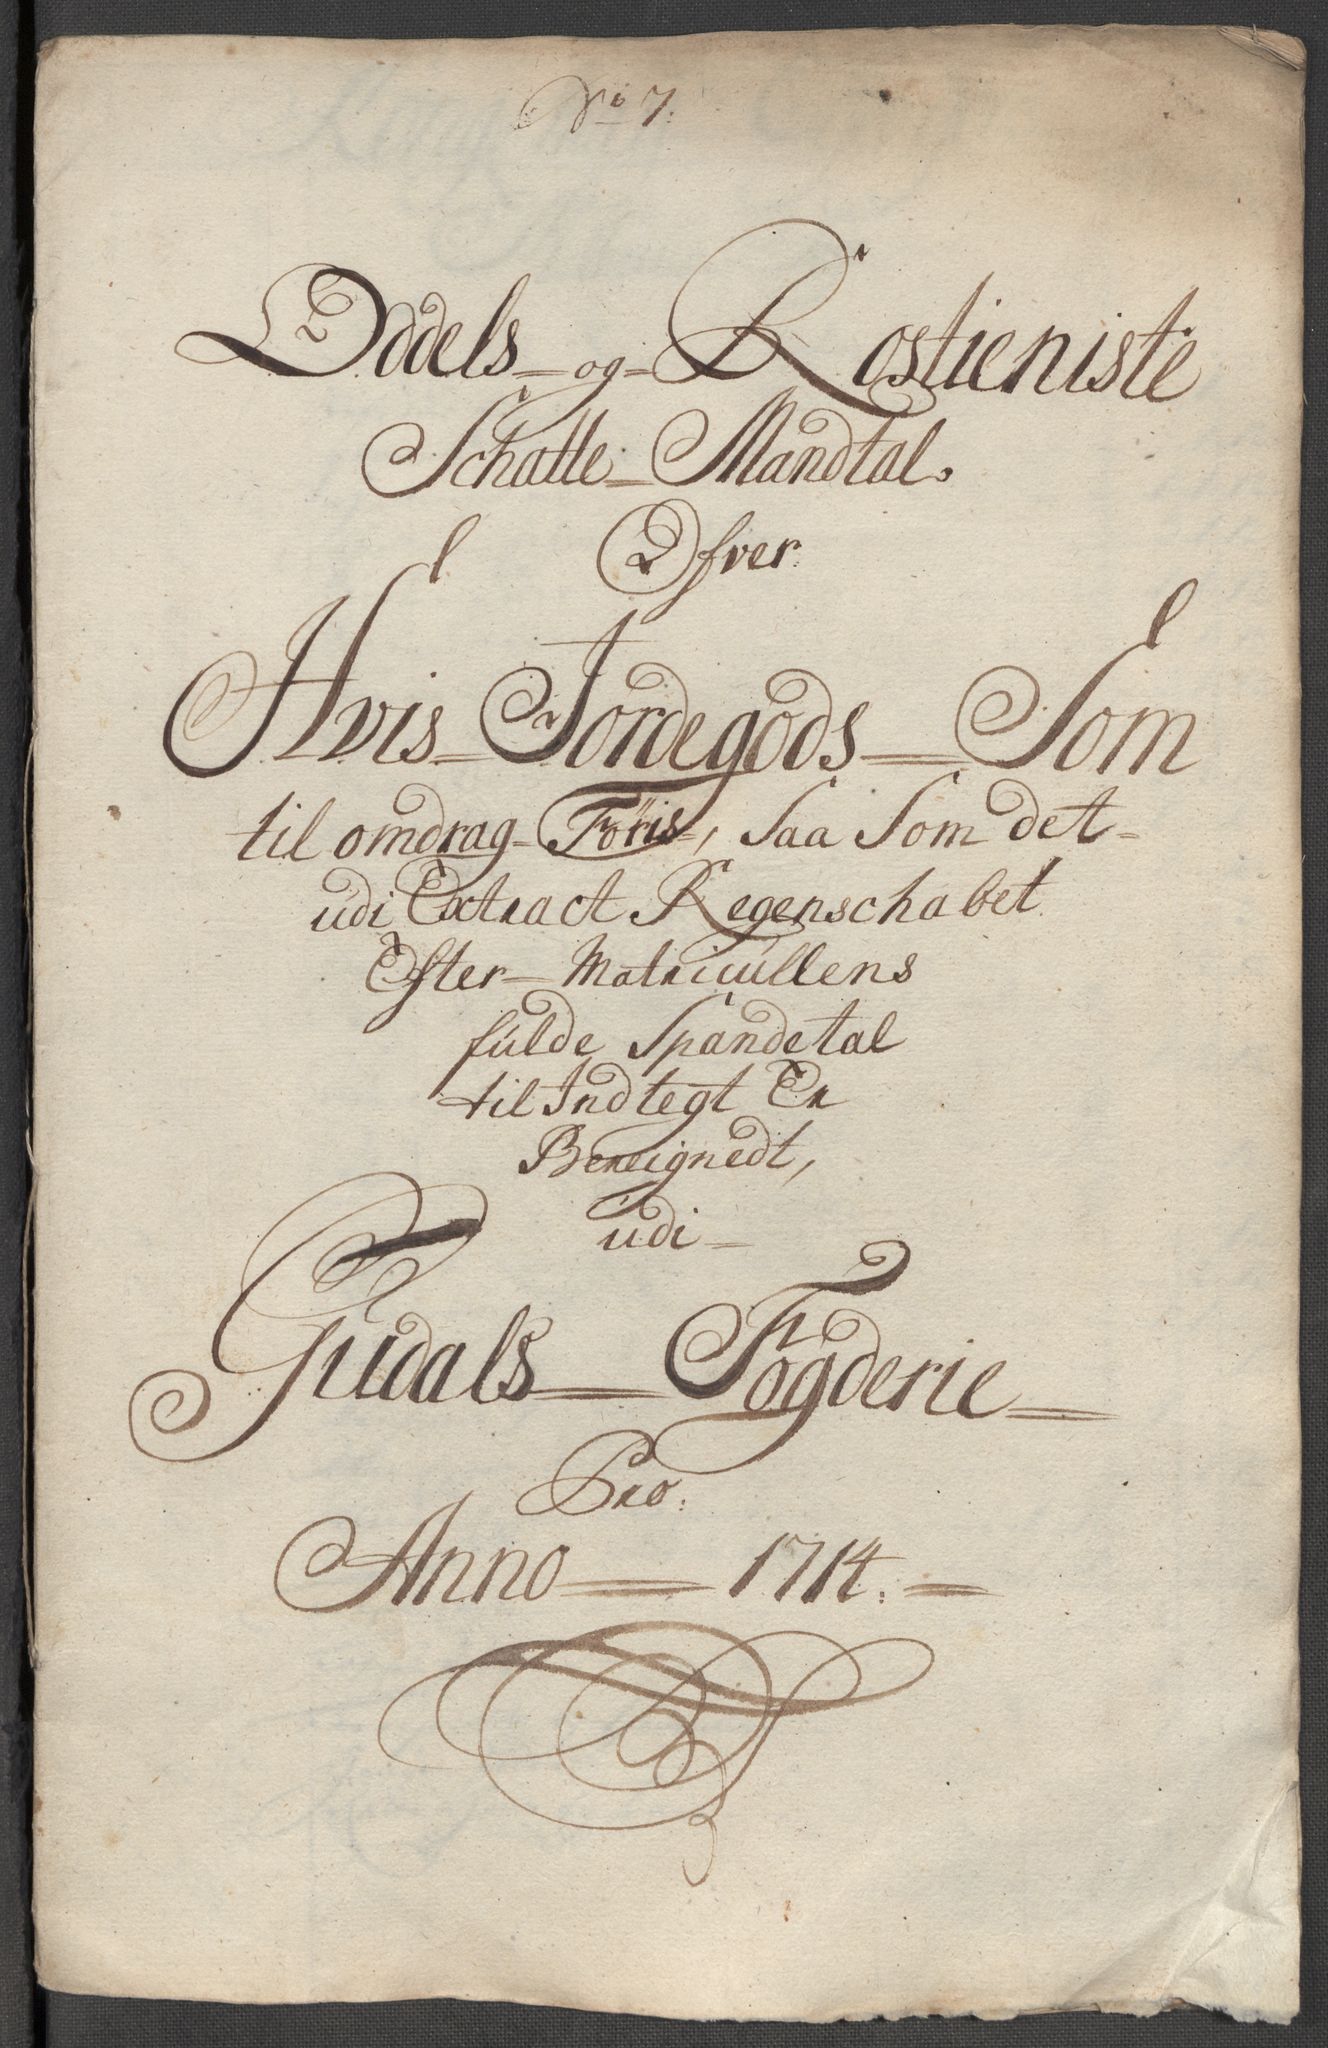 No 7.
Oddels og Rostieniste
Schatte Mandtal.
Ofver
Hvis Jordegods Som
til omdrag Föris, Saa Som det
udi Extract Regenschabet
Efter Matricullens
fulde Spandetal
til Indtegt Er
Bereignedt,
udi
Gudals Fogderie
Pro:
Anno 1714.